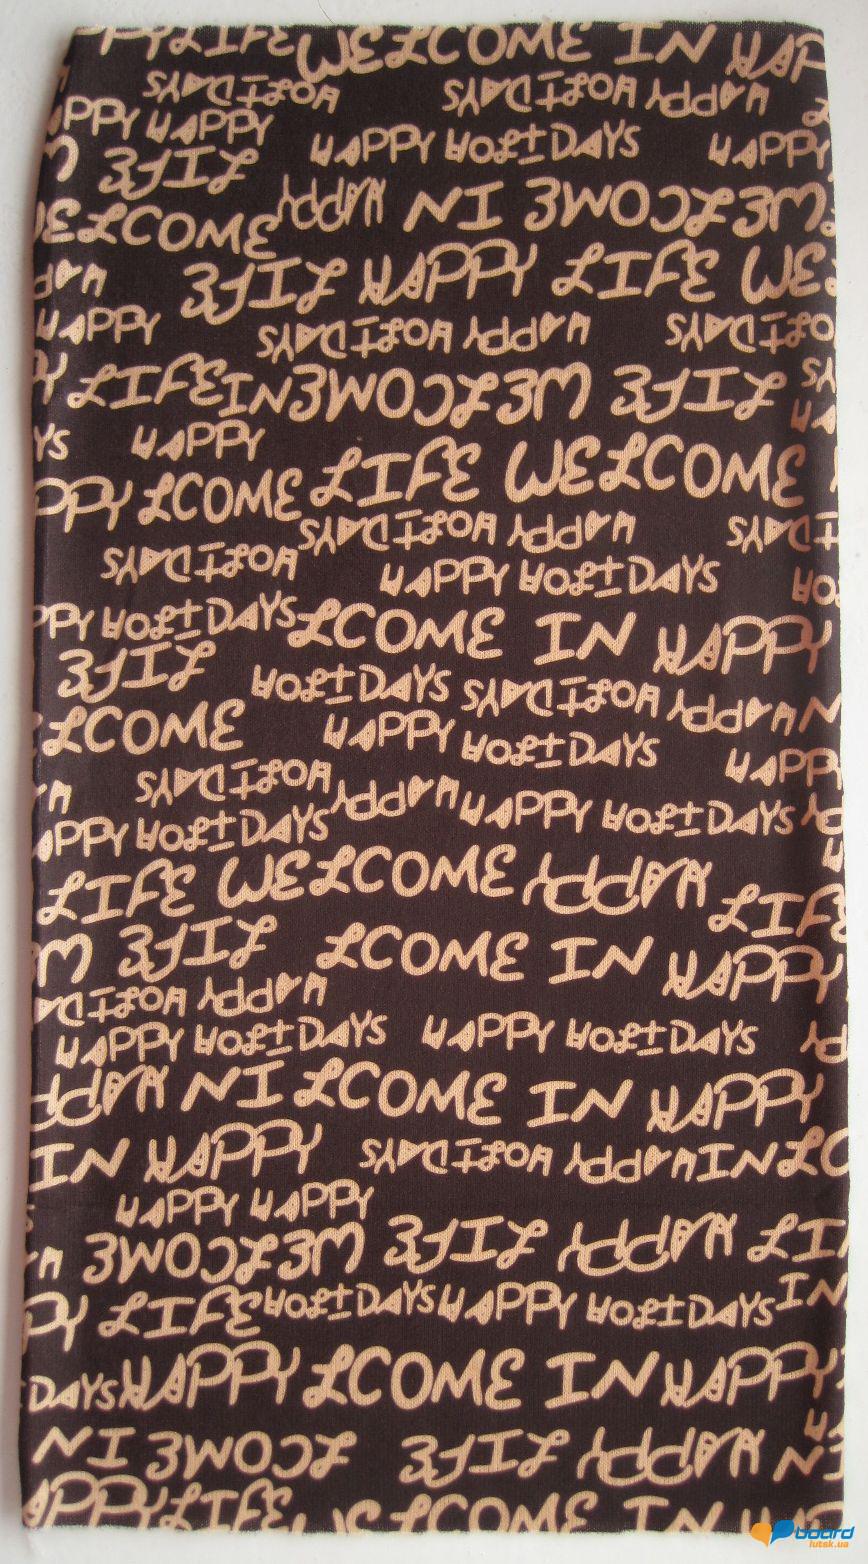 PPYLIFE WELCOME IN HAP
HOLIDAYS HOLIDAYS HAPPY
APPY HAPPY HAPPY HOLIDAYS HAPPY
LIFE HAPPY IN WELCOME
ELCOME
LIFE HAPPY LIFE WE
HAPPY HOLIDAYS HAPPY HOLIDAYS
LIFE IN WELCOME LIFE
YS HAPPY LIFE WELCOME
PPY LCOME
HOLIDAYS HAPPY
HOLIDAYS HAPPY HOLIDAYS
PPY HOLIDAYS LCOME IN HAPPY
LIFE HOLIDAYS HOLIDAYS HAPPY
ELCOME HAPPY HOLIDAYS HAPPY
HOLIDAYS HAPPY HAPPY HOLIDAYS
APPY HOLIDAYS
LIFE WELCOME HAPPY LIFE
LIFE LCOME IN HAPPY
HOLIDAYS HAPPY
HAPPY HOLIDAYS HAPPY HOLIDAYS
HAPPY IN LCOME IN HAPPY
IN HAPPY HOLIDAYS HAPPY IN LC
HAPPY HAPPY
WELCOME LIFE HAPPY LI
PY LIFE HOLIDAYS HAPPY HOLIDAYS IN
DAYS HAPPY LCOME IN HAPPY
IN LCOME LIFE HAPPY IN
APPY LIFE WELCOME IN HAP
board
lutsk.ua